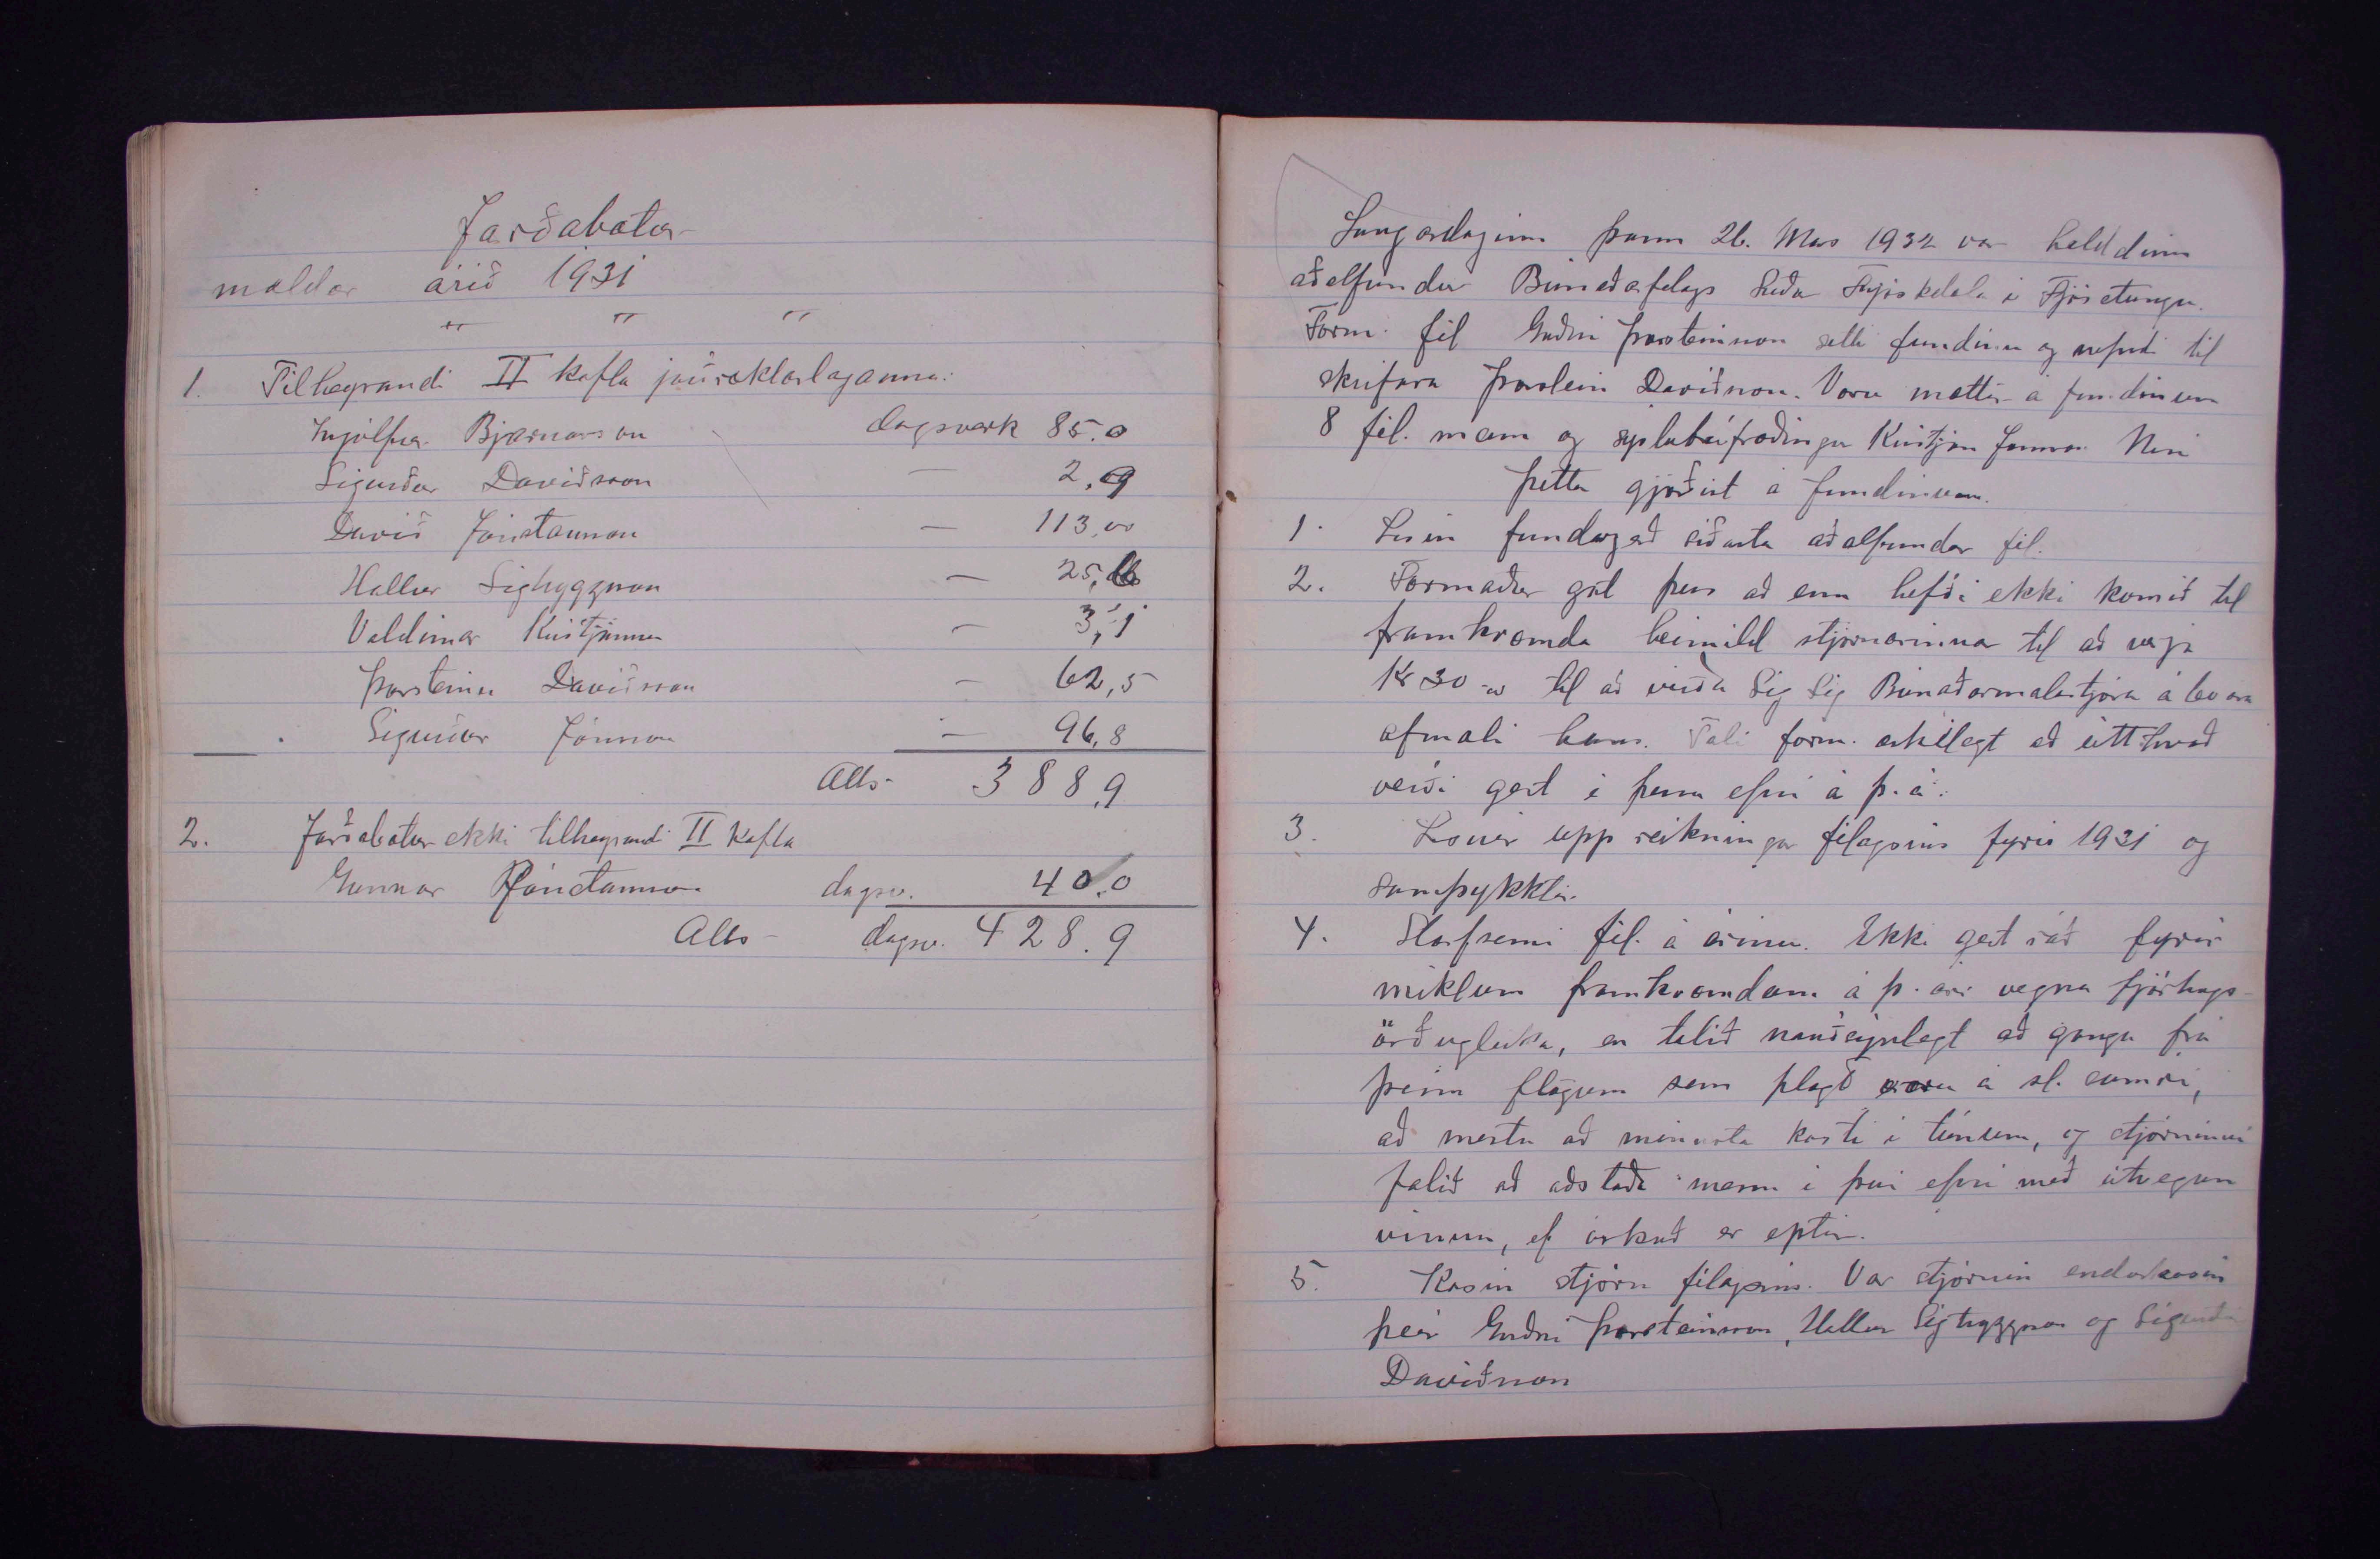 Jarðabætur
mældar árið 1931
" " "
1. Tilheyrandi II kafla jarðræktarlaganna:
Ingólfur Bjarnarson dagsverk 85.0
Sigurður Davíðsson — 2,9
Davíð Jónatansson — 113,00
Hallur Sigtryggsson — 25,6
Valdimar Kristjánsson — 3,1
Þorsteinn Davíðsson — 62,5
Sigurður Jónsson — 96,8
Alls 388,9
2. Jarðabætur ekki tilheyrandi II kafla
Gunnar Jónatansson dagsv. 40.0
Alls dagsv. 428.9
Laugardaginn þann 26. Mars 1932 var haldinn
aðalfundur Búnaðarfélags Suður Fnjóskdæla í Fjósatungu.
Form. fél Guðni Þorsteinsson setti fundinn og nefndi til
skrifara Þorstein Davíðsson. Voru mættir á fundinum
8 fél. menn og Kristján Jónsson
Þetta gjörðist á fundinum.
1. Lesin fundargerð síðasta aðalfundar fél.
2. Formaður gat þess að enn hefði ekki komið til
framkvæmda heimild stjórnarinnar til að verja
Kr 30 00 til að Sig Sig Búnaðarmálastjóra á
afmæli hans. Taldi form. æskilegt að eitthvað
verði gert í þessu efni á þ.á.
3. Lesnir upp reikningar félagsins fyrir 1931 og
samþykktir.
4. Starfsemi fél. á árinu. Ekki gert ráð fyrir
miklum framkvæmdum á þ. ári vegna fjárhags-
örðugleika, en talið nauðsynlegt að ganga frá
þeim flögum sem plægð voru á sl. sumri,
að mestu að minnsta kosti í túnum, og stjórninni
falið að aðstoða menn í því efni með útvegun
vinnu, ef óskað er eptir.
5. Kosin stjórn félagsins. Var stjórnin endurkosin
þeir Guðni Þorsteinsson, Hallur Sigtryggsson og Sigurður
Davíðsson